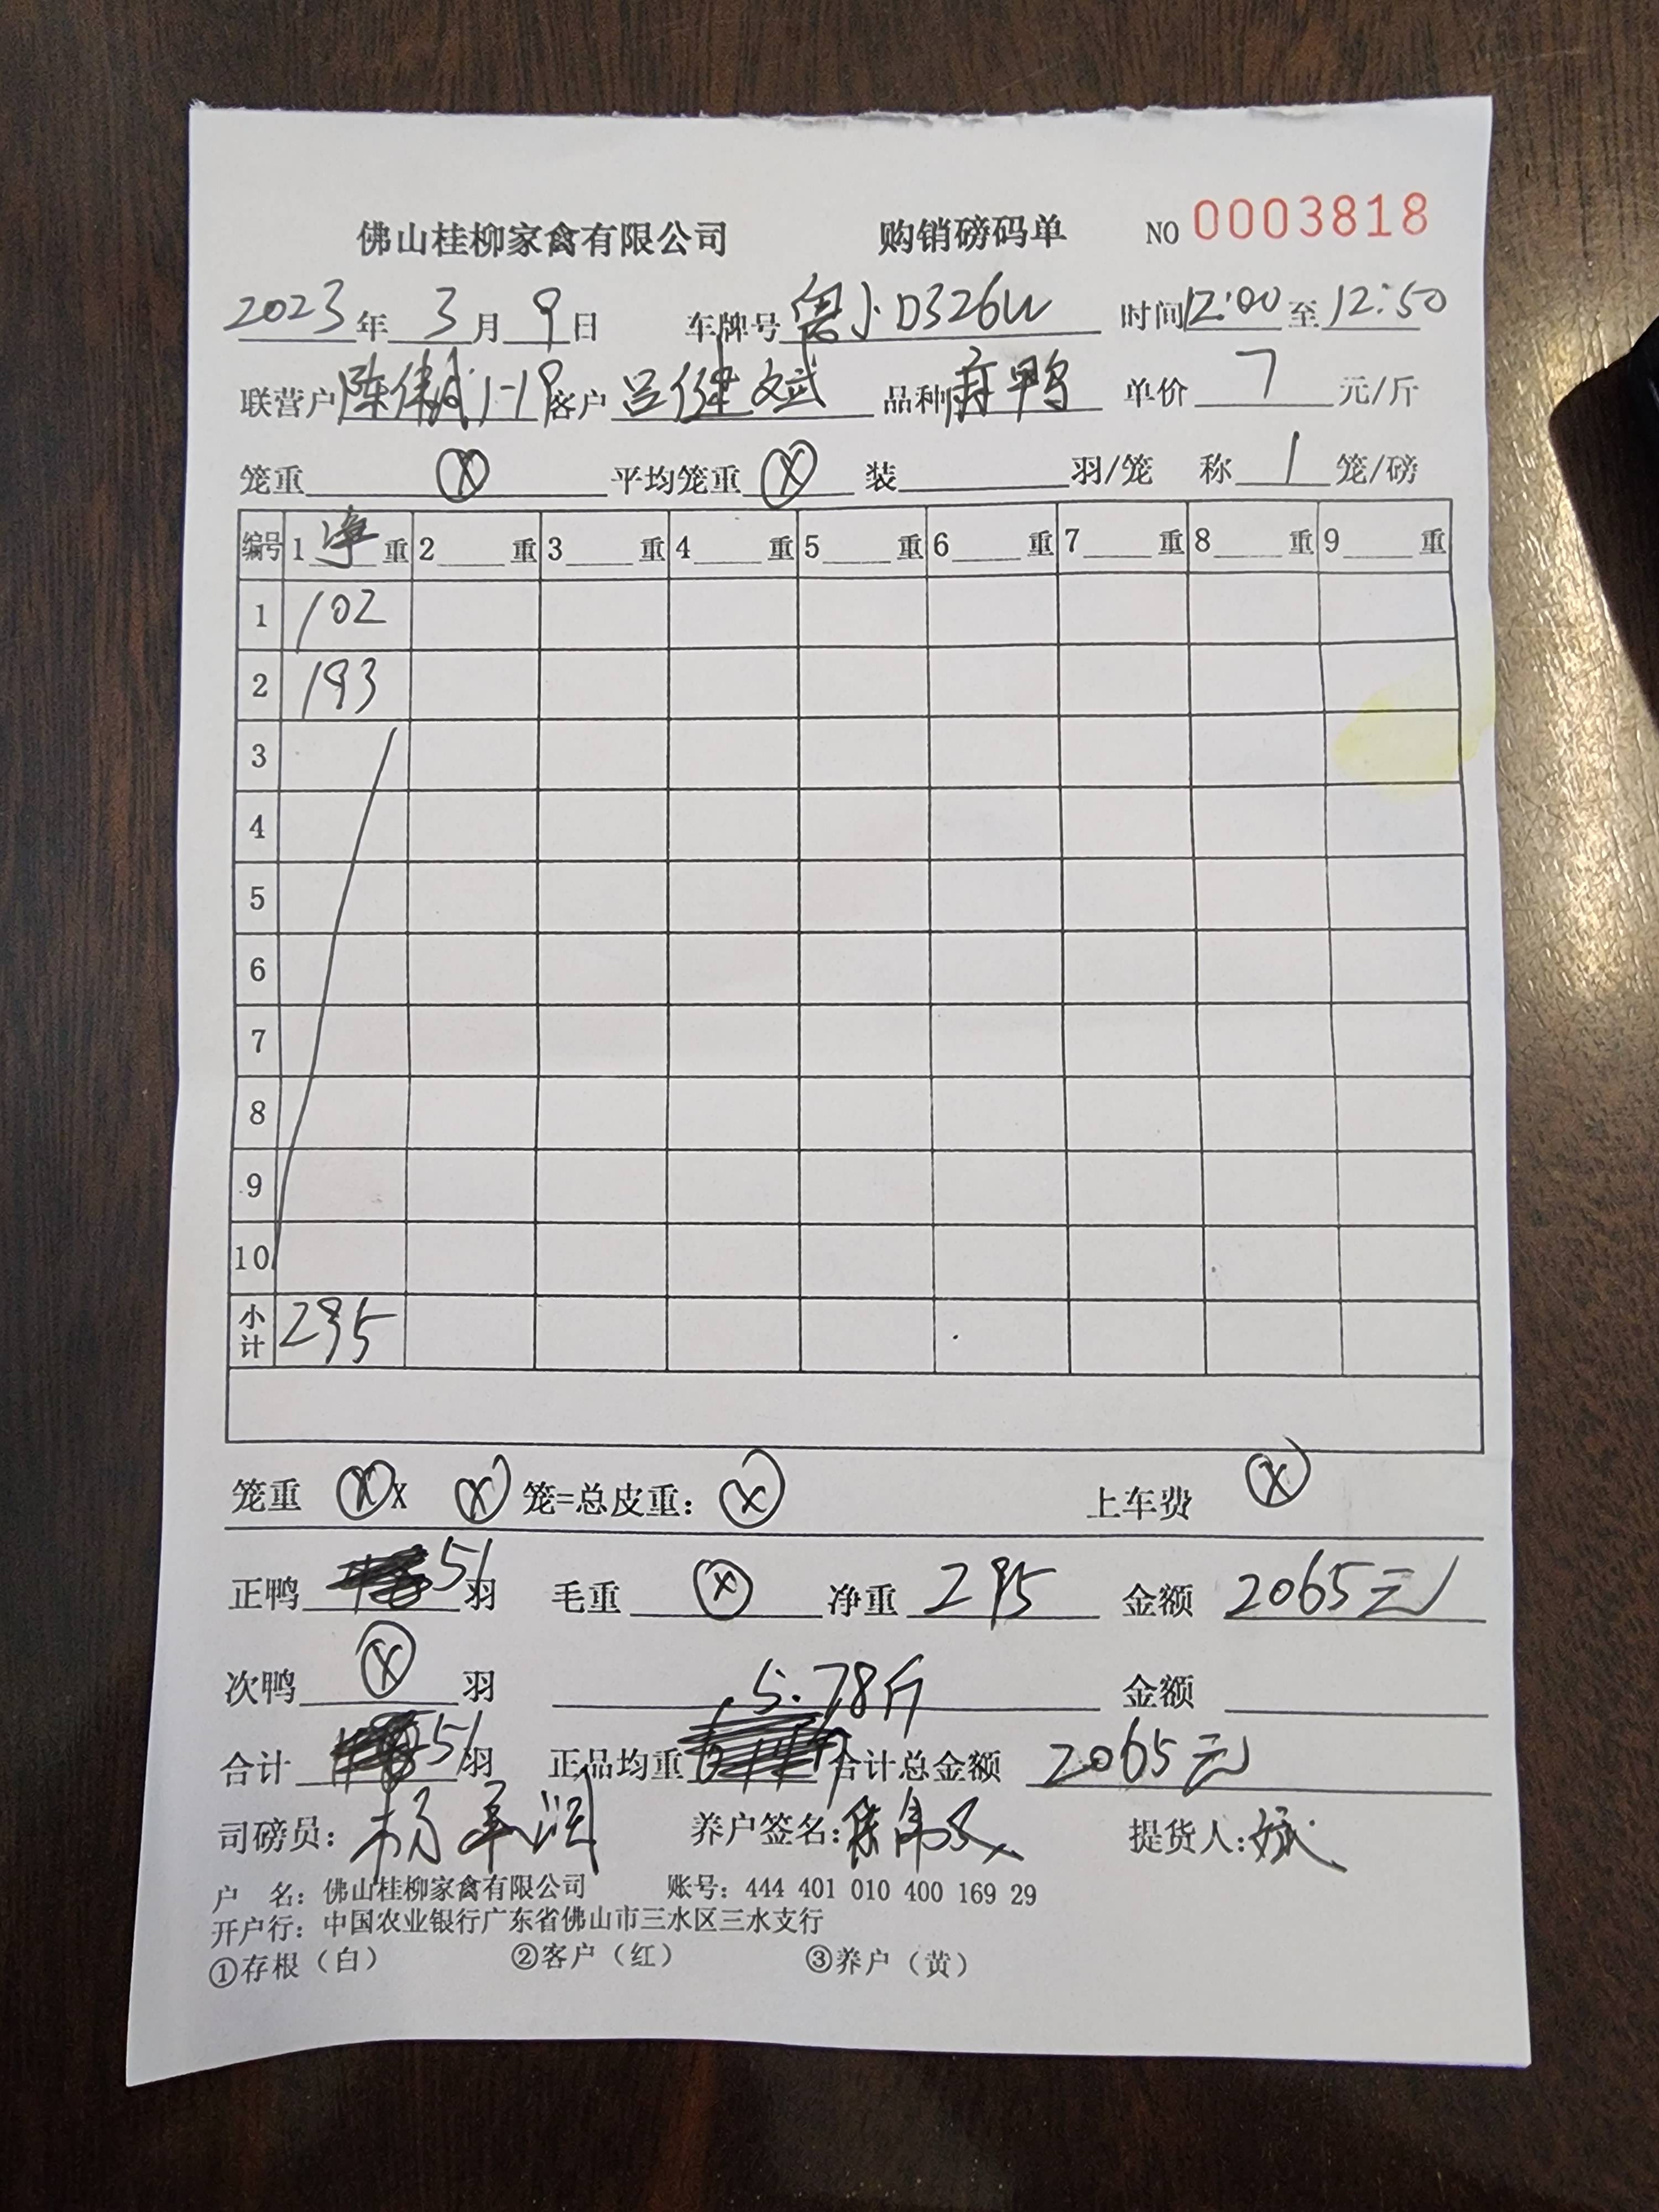 佛山桂柳家禽有限公司 购销磅码单 NO 0003818
2023年 3月 9日 车牌号 D326W 时间 12:00 至 12:50
联营户 陈伟 1-19 客户 吕健斌 品种 麻鸭 单价 7 元/斤
笼重 ⓧ 平均笼重 ⓧ 装 羽/笼 称 1 笼/磅
编号 1 净 重 2 重 3 重 4 重 5 重 6 重 7 重 8 重 9 重
1 102
2 193
3
4
5
6
7
8
9
10
小计 295
笼重 ⓧ X ⓧ 笼=总皮重: ⓧ 上车费 ⓧ
正鸭 51 羽 毛重 ⓧ 净重 295 金额 2065元
次鸭 ⓧ 羽 5.78斤 金额
合计 51 羽 正品均重 合计总金额 2065元
司磅员: 杨 润 养户签名: 提货人: 斌
户 名: 佛山桂柳家禽有限公司 账号: 444 401 010 400 169 29
开户行: 中国农业银行广东省佛山市三水区三水支行
①存根（白） ②客户（红） ③养户（黄）